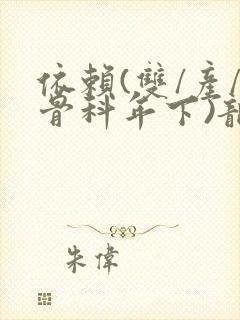 依賴(雙/產/
骨科年下)
朱偉